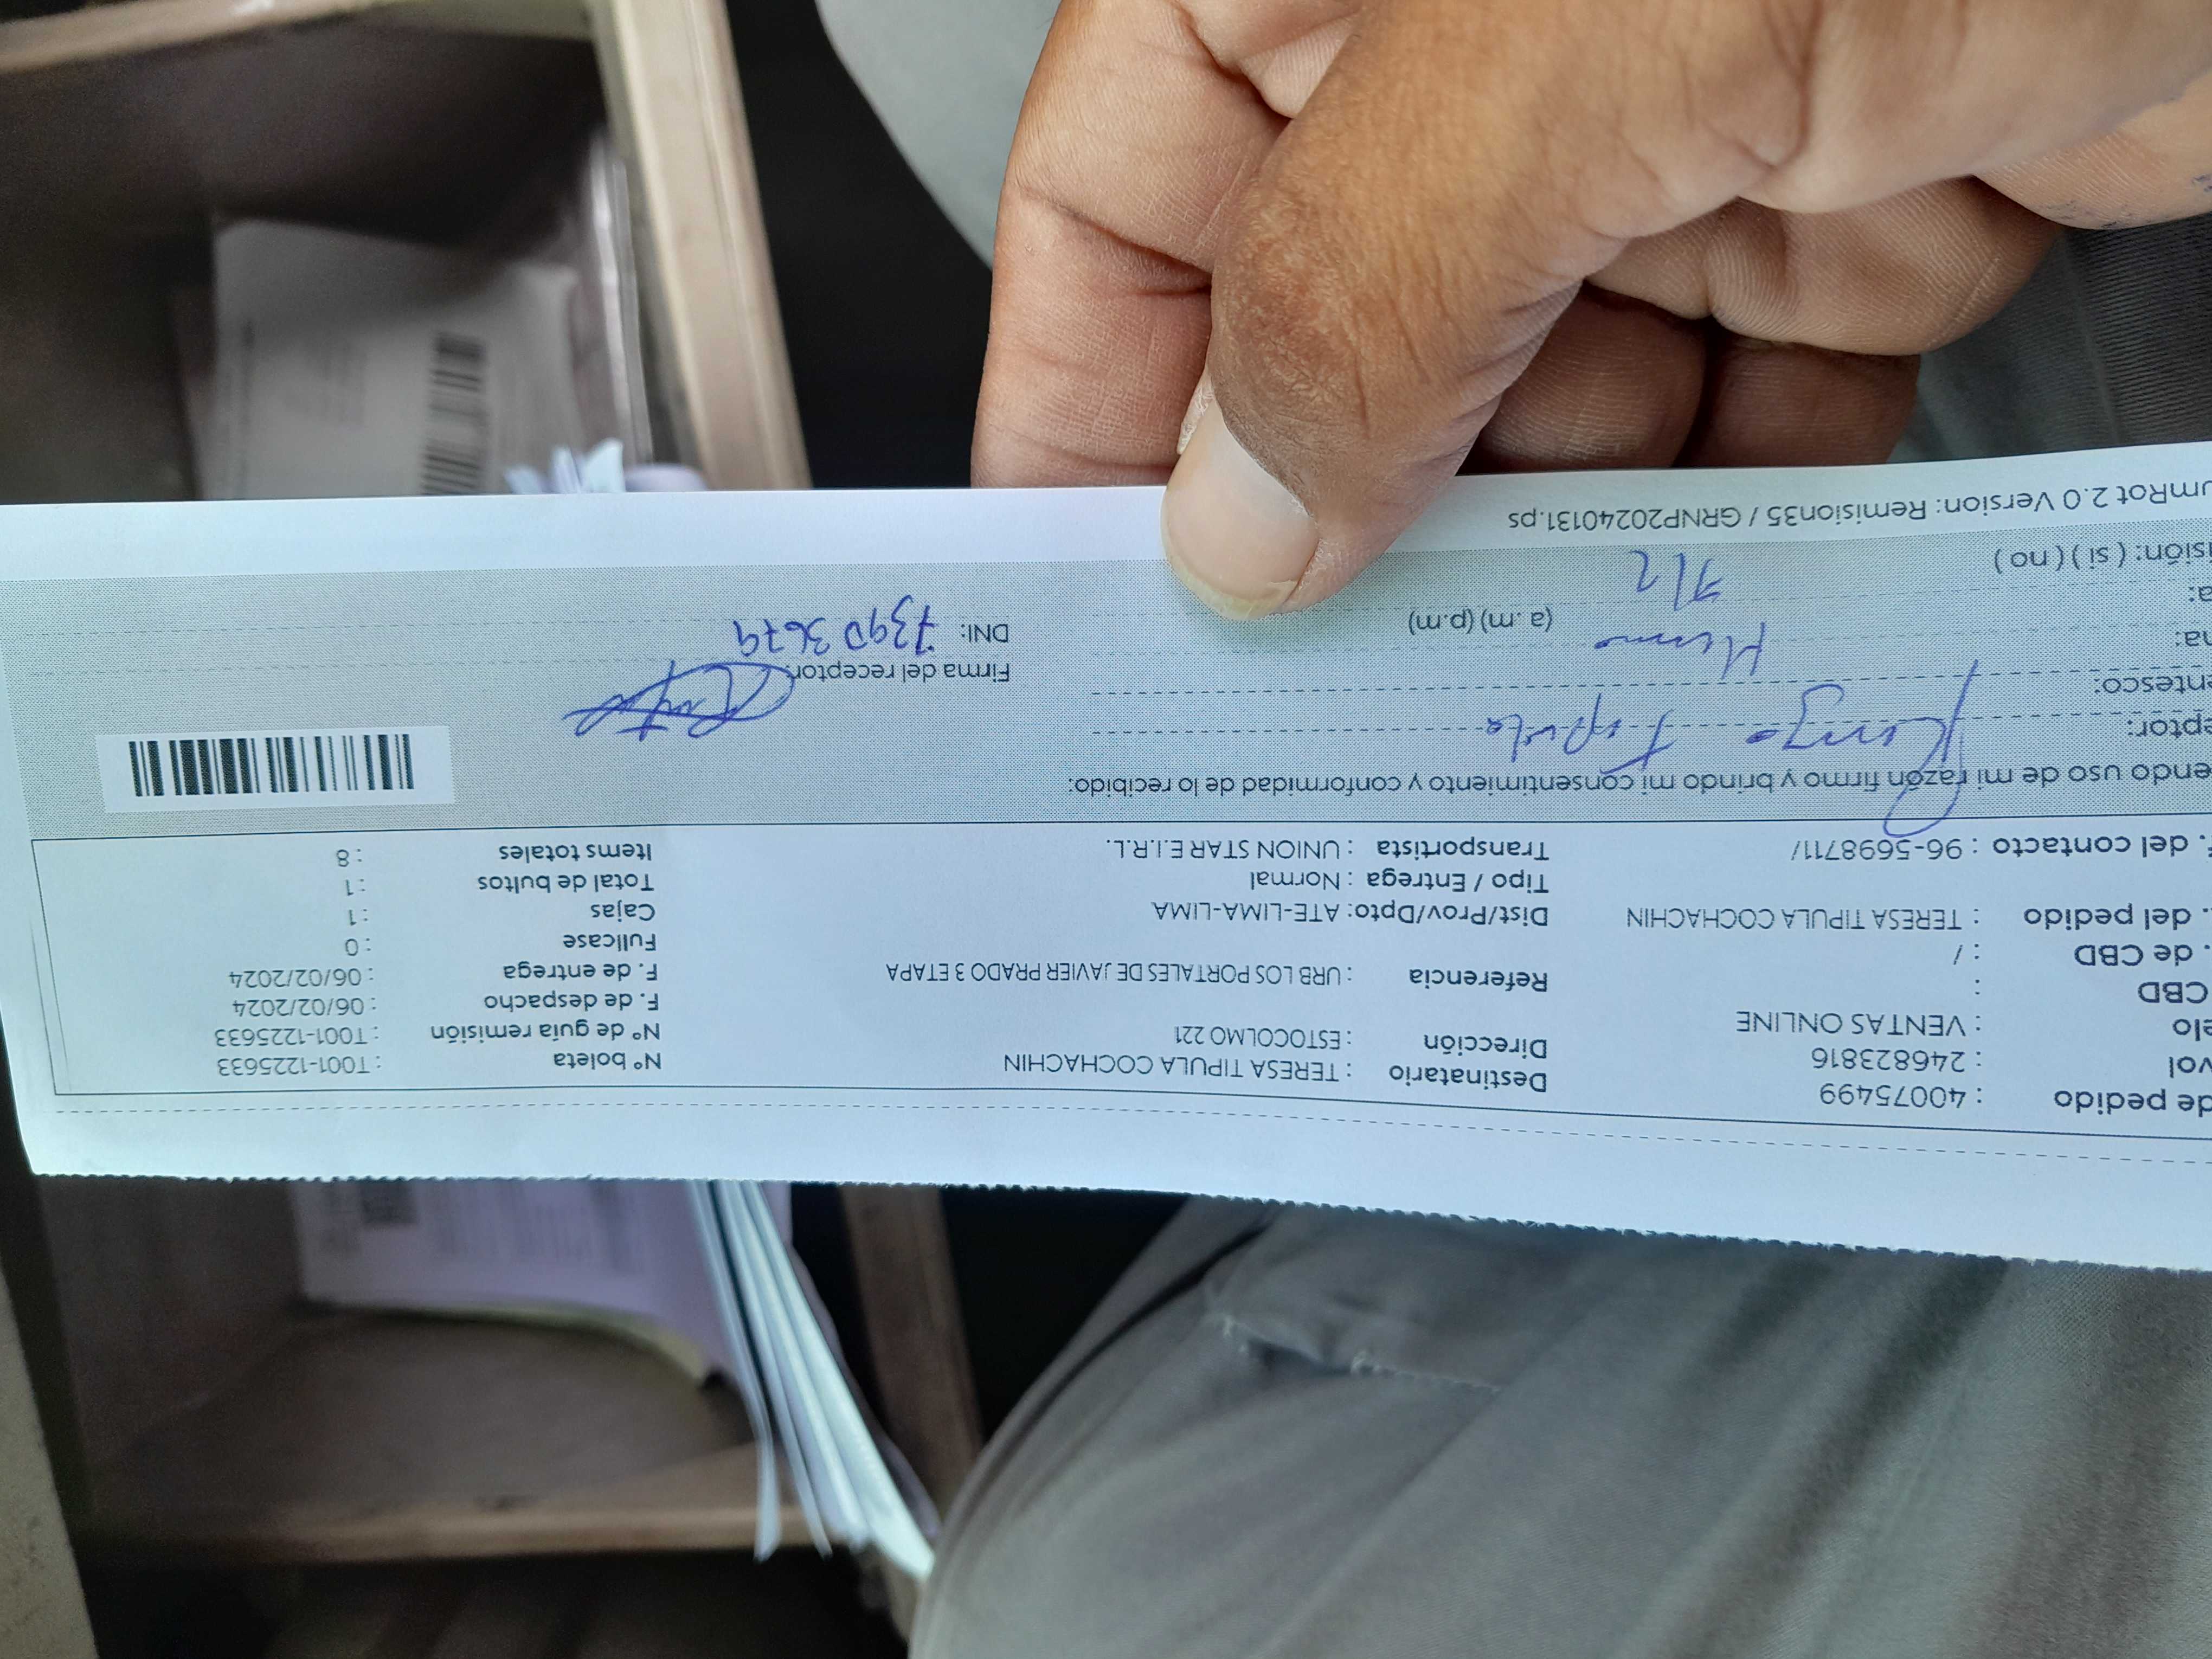 de pedido : 40075499 Destinatario : TERESA TIPULA COCHACHIN Nº boleta : T001-1225633
vol : 246823816 Dirección : ESTOCOLMO 221 Nº de guía remisión : T001-1225633
elo : VENTAS ONLINE Referencia : URB LOS PORTALES DE JAVIER PRADO 3 ETAPA F. de despacho : 06/02/2024
CBD : F. de entrega : 06/02/2024
. de CBD : / Dist/Prov/Dpto: ATE-LIMA-LIMA Fullcase : 0
. del pedido : TERESA TIPULA COCHACHIN Tipo / Entrega : Normal Cajas : 1
Total de bultos : 1
. del contacto : 96-5698711/ Transportista : UNION STAR E.I.R.L. Items totales : 8
endo uso de mi razón firmo y brindo mi consentimiento y conformidad de lo recibido:
eptor: Renzo Tipula
entesco: Firma del receptor:
na: (a. m) (p.m) DNI: 73903679
a: 7/2
isión: ( si ) ( no )
umRot 2.0 Version: Remision35 / GRNP20240131.ps